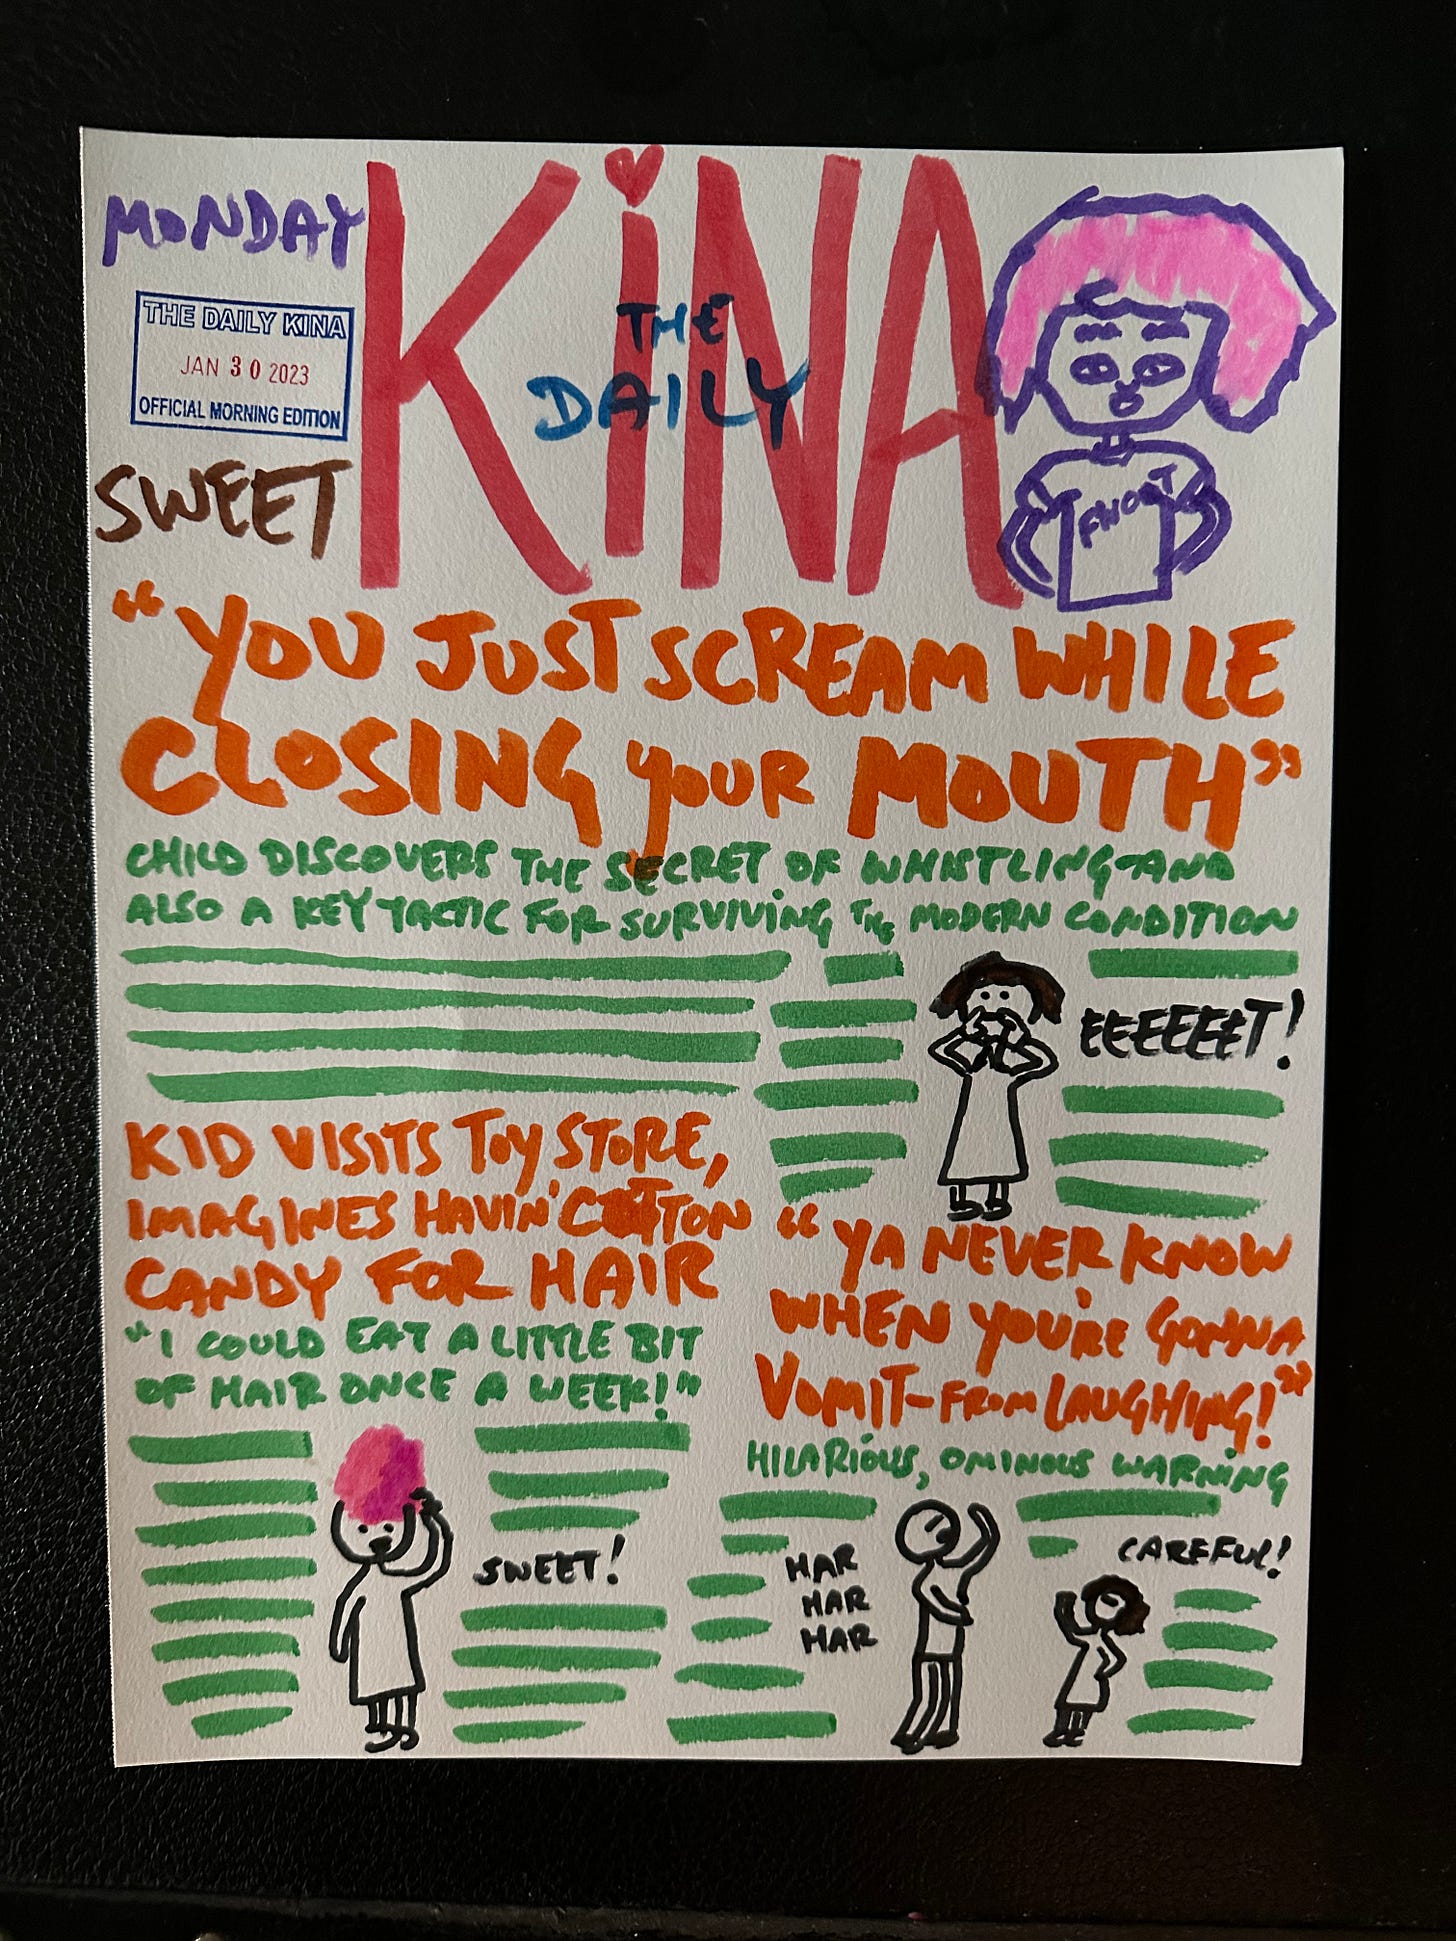 MONDAY
THE DAILY KINA
JAN 30 2023
OFFICIAL MORNING EDITION
SWEET
KiNA
THE
DAILY
"YOU JUST SCREAM WHILE
CLOSING your MOUTH"
CHILD DISCOVERS THE SECRET OF WHISTLING-AND
ALSO A KEY TACTIC FOR SURVIVING THE MODERN CONDITION
EEEEEEET!
KID VISITS Toy STORE,
IMAGINES HAVIN' COTTON
CANDY FOR HAIR
"I COULD EAT A LITTLE BIT
OF HAIR ONCE A WEEK!"
SWEET!
"YA NEVER KNOW
WHEN YOU'RE GONNA
VOMIT-FROM LAUGHING!"
HILARIOUS, OMINOUS WARNING
HAR
HAR
HAR
CAREFUL!